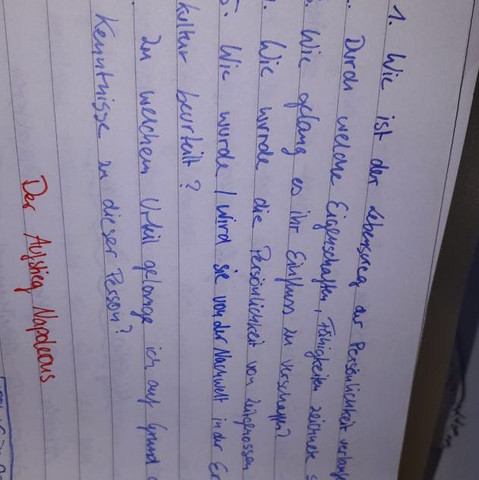 1. Wie ist der Lebensweg der Persönlichkeit verlaufen
Durch welche Eigenschaften, Fähigkeiten zeichnet s
Wie gelang es ihr Einfluss zu verschaffen?
Wie wurde die Persönlichkeit von Zeitgenossen
5. Wie wurde / wird sie von der Nachwelt in der Er
kultur beurteilt?
Zu welchem Urteil gelange ich auf Grund
Kenntnisse zu dieser Person?
Der Aufstieg Napoleons